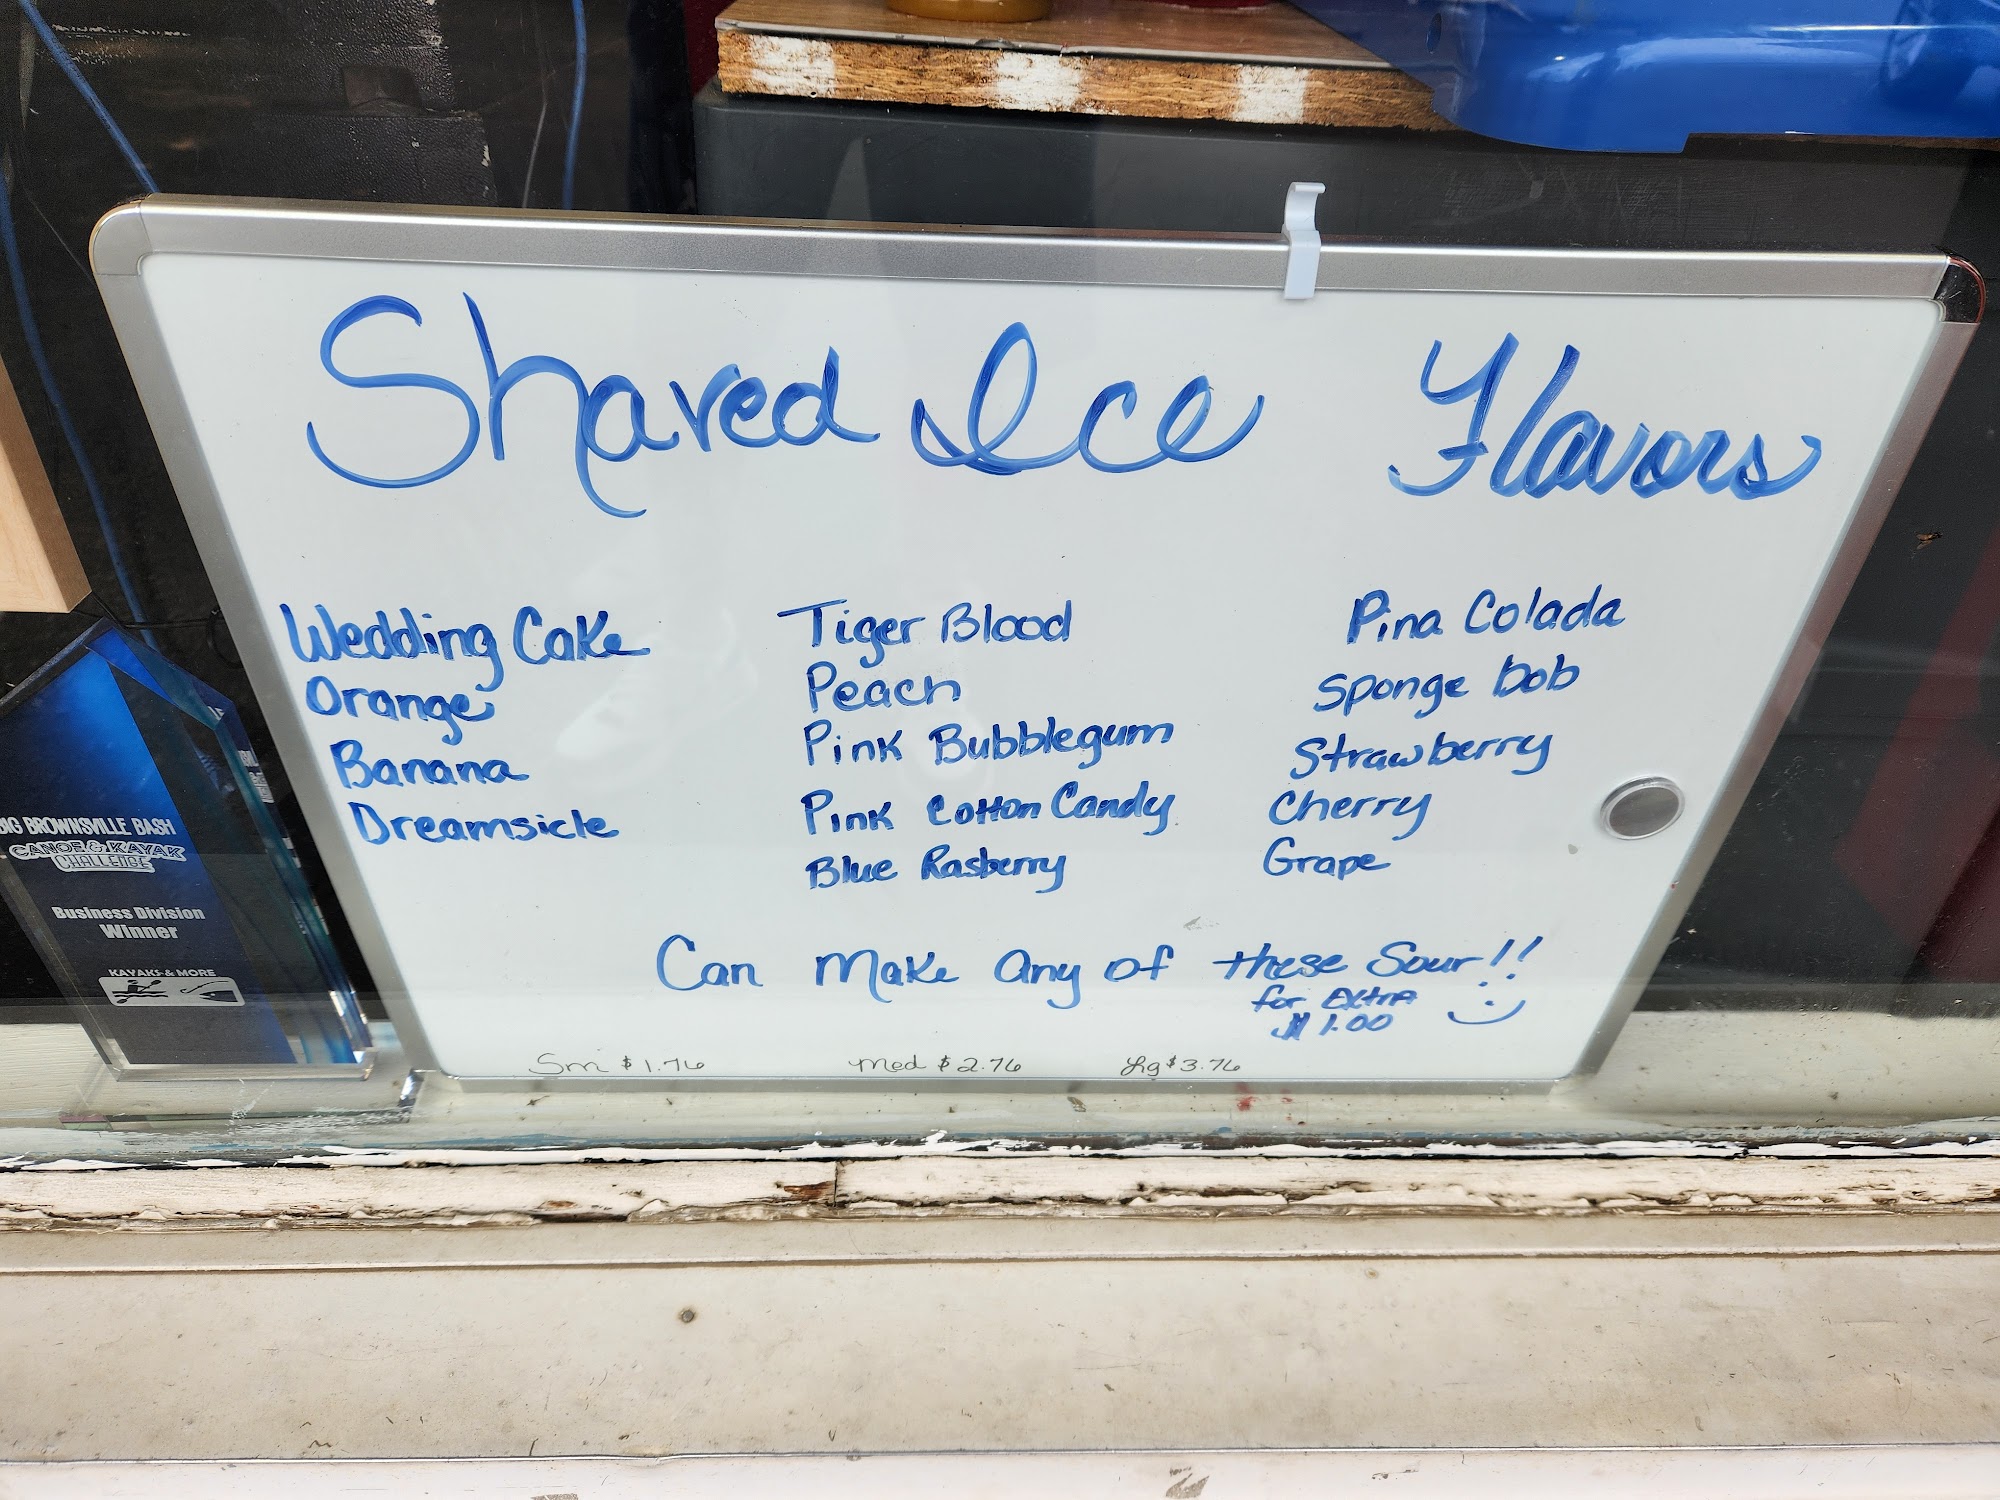 Shaved Ice Flavors
Wedding Cake
Orange
Banana
Dreamsicle
Tiger Blood
Peach
Pink Bubblegum
Pink Cotton Candy
Blue Rasberry
Pina Colada
Sponge bob
Strawberry
Cherry
Grape
Can Make Any of these Sour!!
for Extra
$1.00
Sm $1.76
Med $2.76
Lg $3.76
BIG BROWNSVILLE BASH
CANOE & KAYAK
CHALLENGE
Business Division
Winner
KAYAKS & MORE